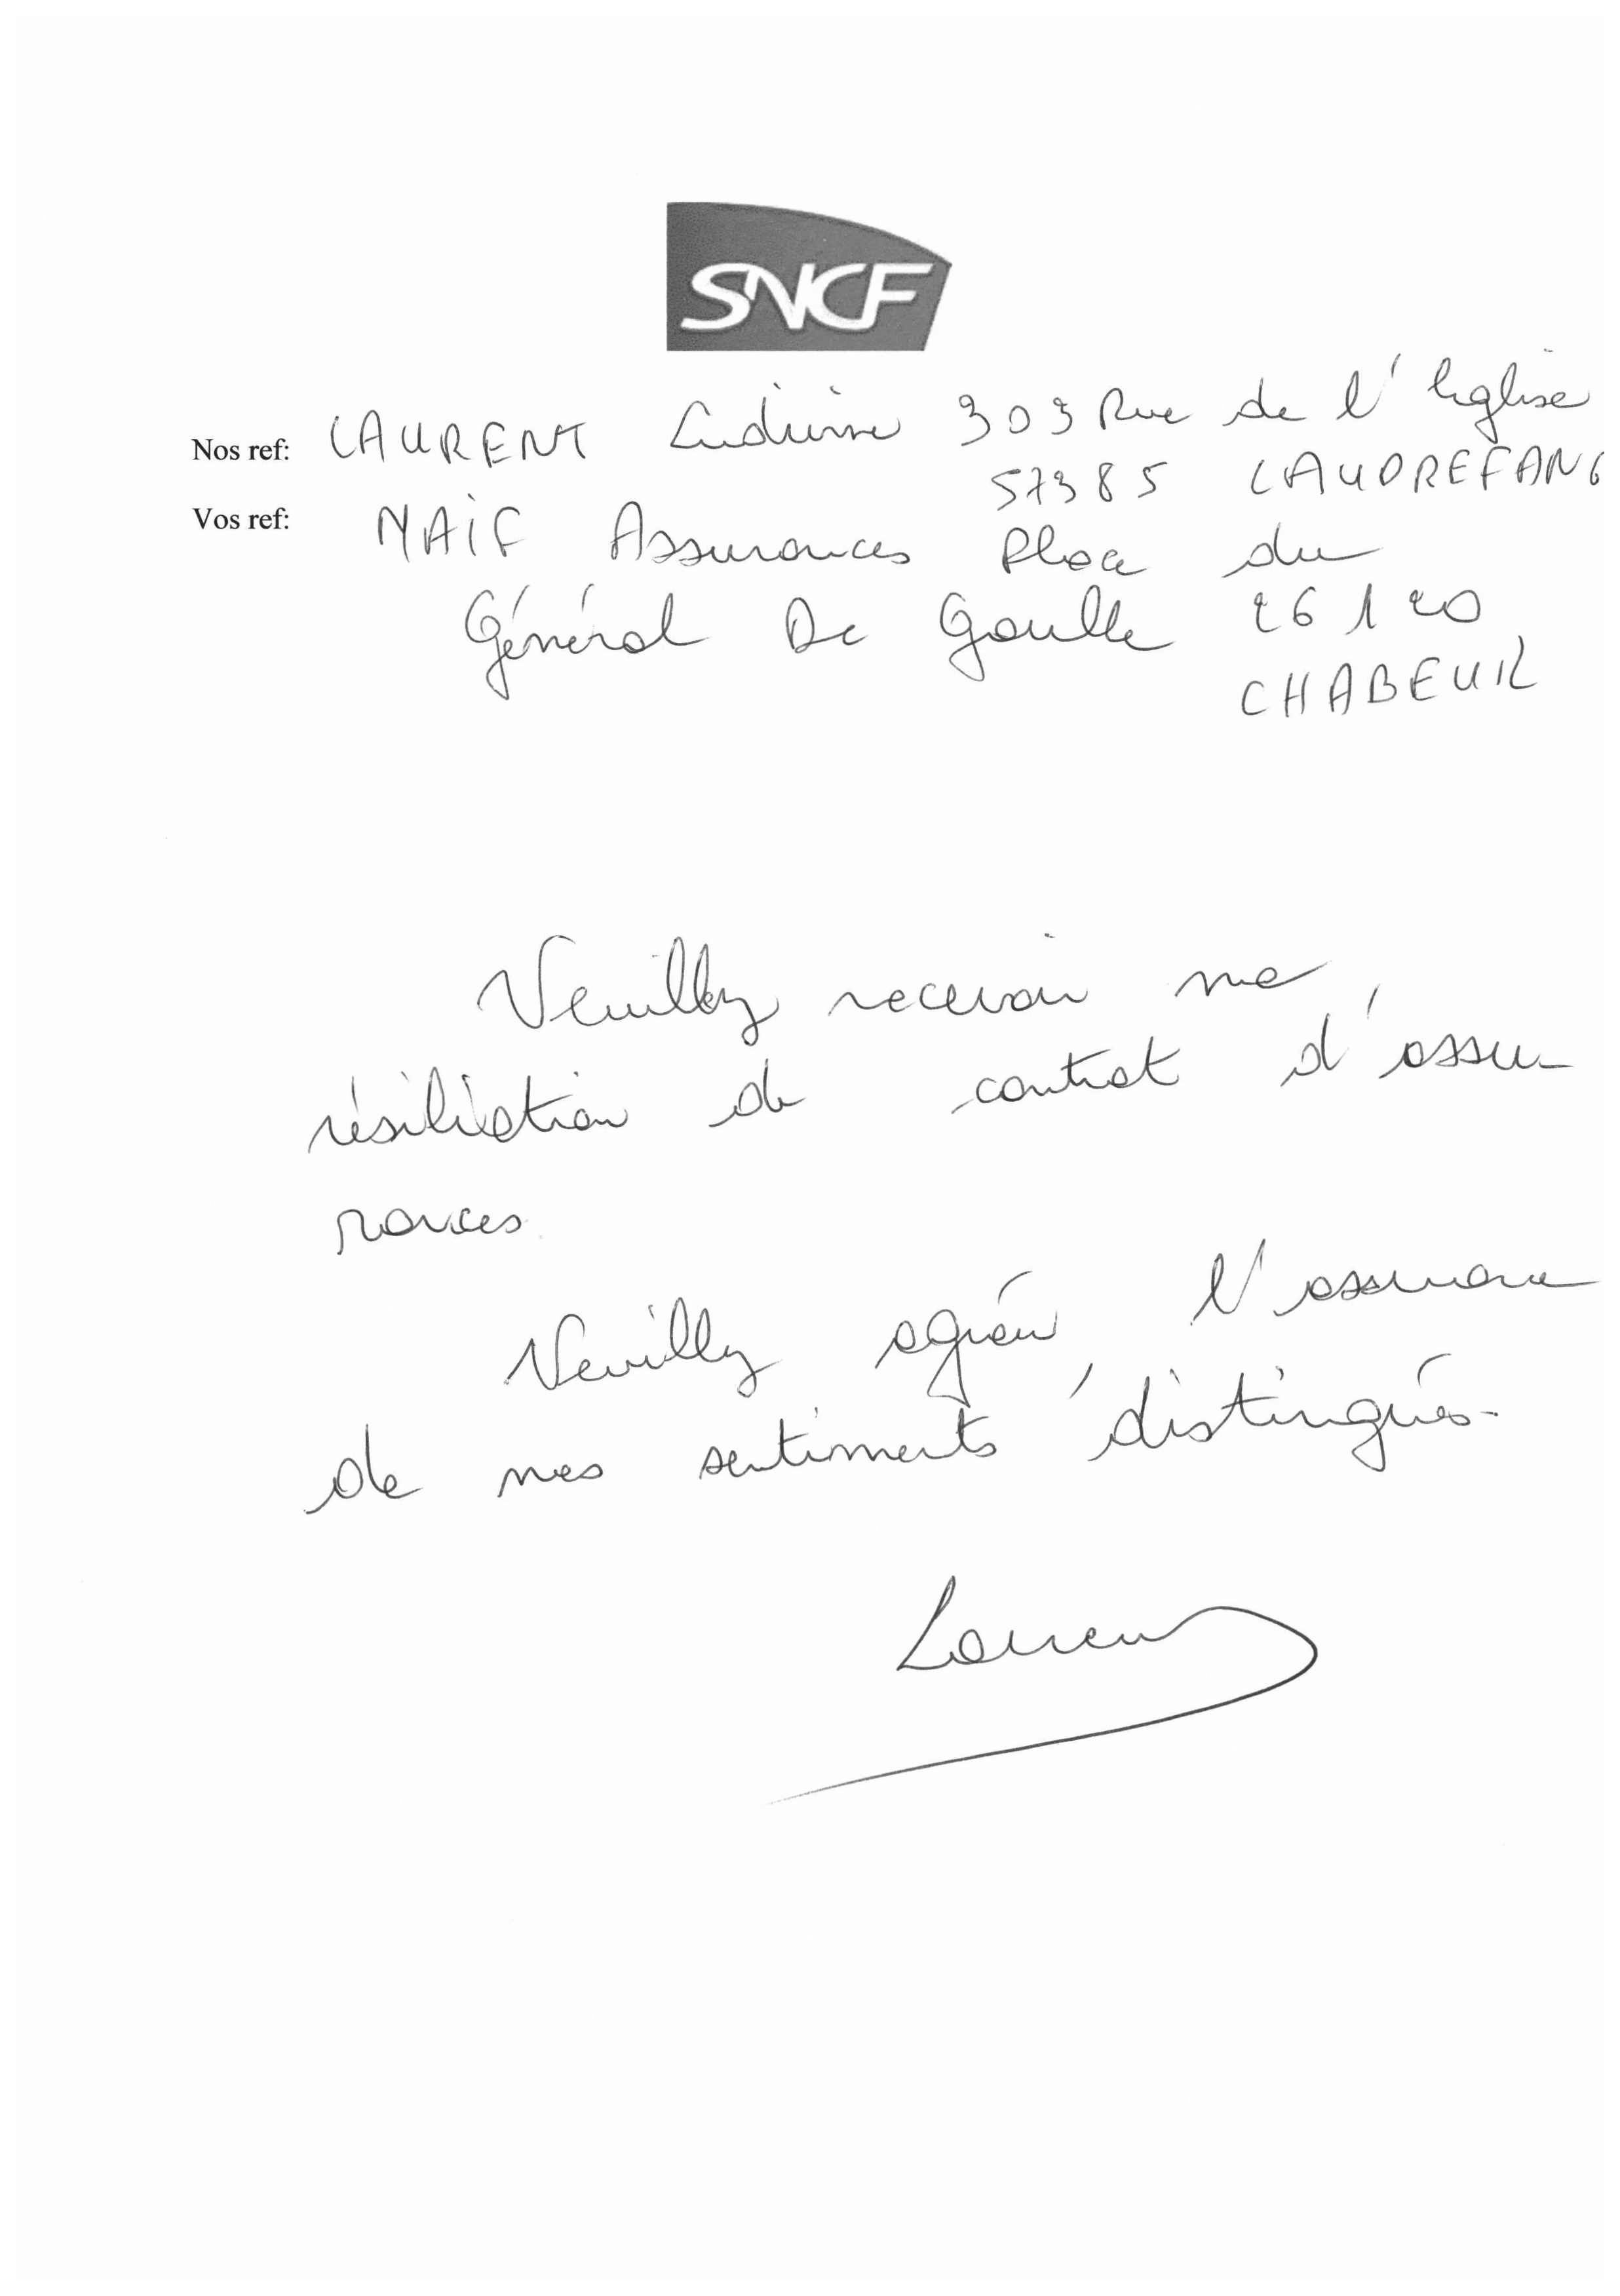 SNCF
Nos ref: LAURENT Ludivine 303 Rue de l'église
57385 LAUDREFANG
Vos ref: MAIF Assurances Place du
Général De Gaulle 26120
CHABEUIL
Veuillez recevoir ma
résiliation de contrat d'assu-
rances.
Veuillez agréer, l'assurance
de mes sentiments distingués.
Laurent